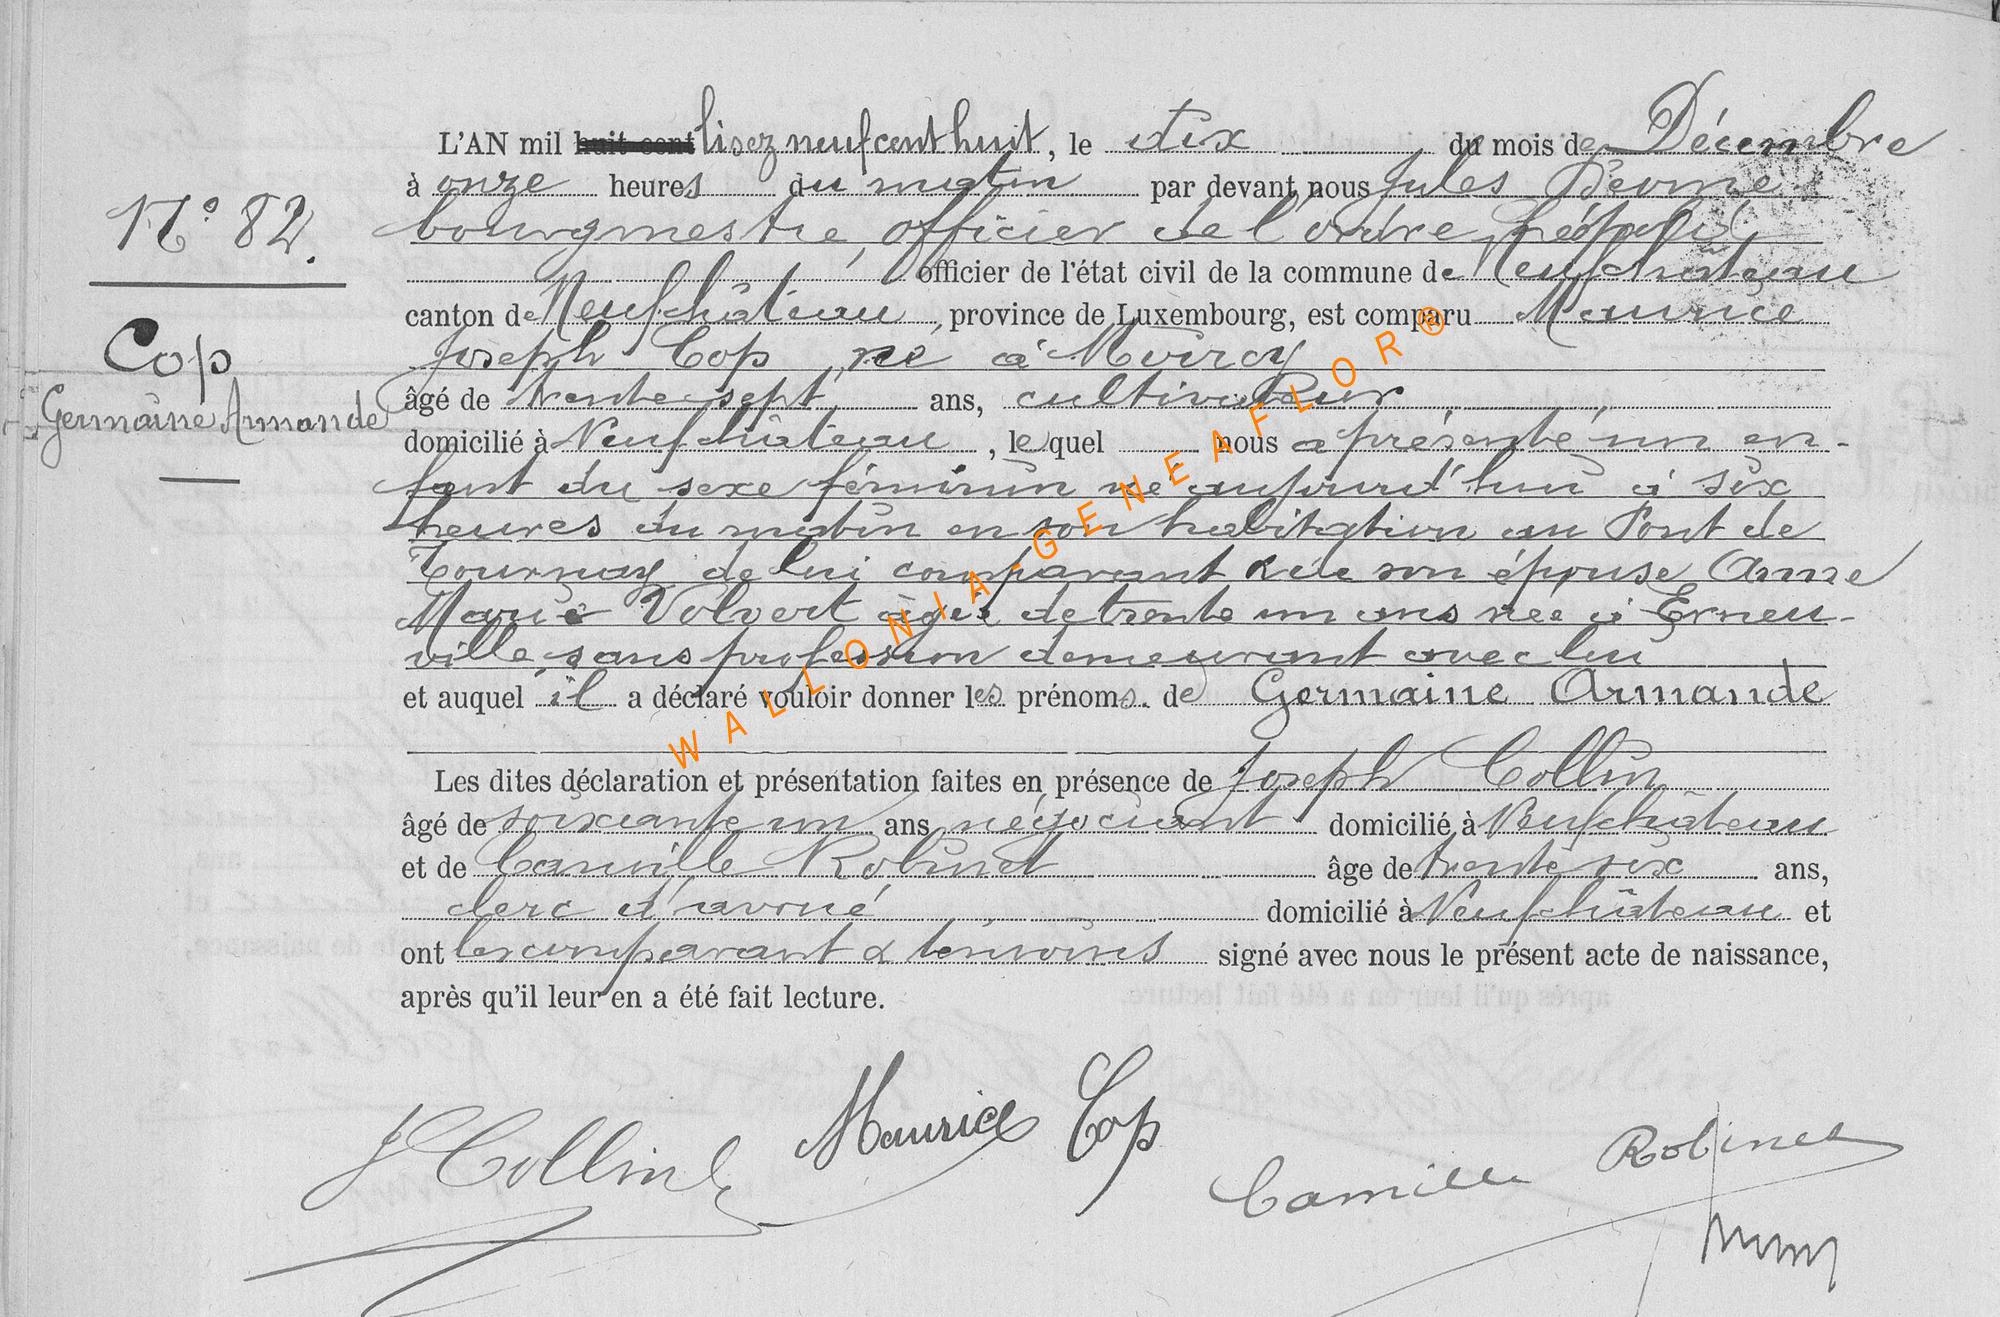 L'AN mil huit cent lisez neuf cent huit, le dix du mois de Décembre
à onze heures du matin par devant nous Jules
N° 82.
bourgmestre, officier de l'ordre Léopold
officier de l'état civil de la commune de Neufchâteau
canton de Neufchâteau, province de Luxembourg, est comparu Maurice
Cop
Joseph Cop, né à Moircy
Germaine Armande
âgé de trente sept ans, cultivateur
domicilié à Neufchâteau, lequel nous a présenté un en-
fant du sexe féminin né aujourd'hui à six
heures du matin en son habitation au Pont de
Tournay de lui comparant & de son épouse Anne
Marie Volvert âgée de trente un ans née à Erneu-
ville sans profession demeurant avec lui
et auquel il a déclaré vouloir donner les prénoms de Germaine Armande
Les dites déclaration et présentation faites en présence de Joseph Collin
âgé de soixante un ans négociant domicilié à Neufchâteau
et de Camille Robinet âge de trente six ans,
clerc d'avoué domicilié à Neufchâteau et
ont les comparant & témoins signé avec nous le présent acte de naissance,
après qu'il leur en a été fait lecture.
J Collin Maurice Cop
Camille Robinet
WALLONIA-GENEAFLOR®